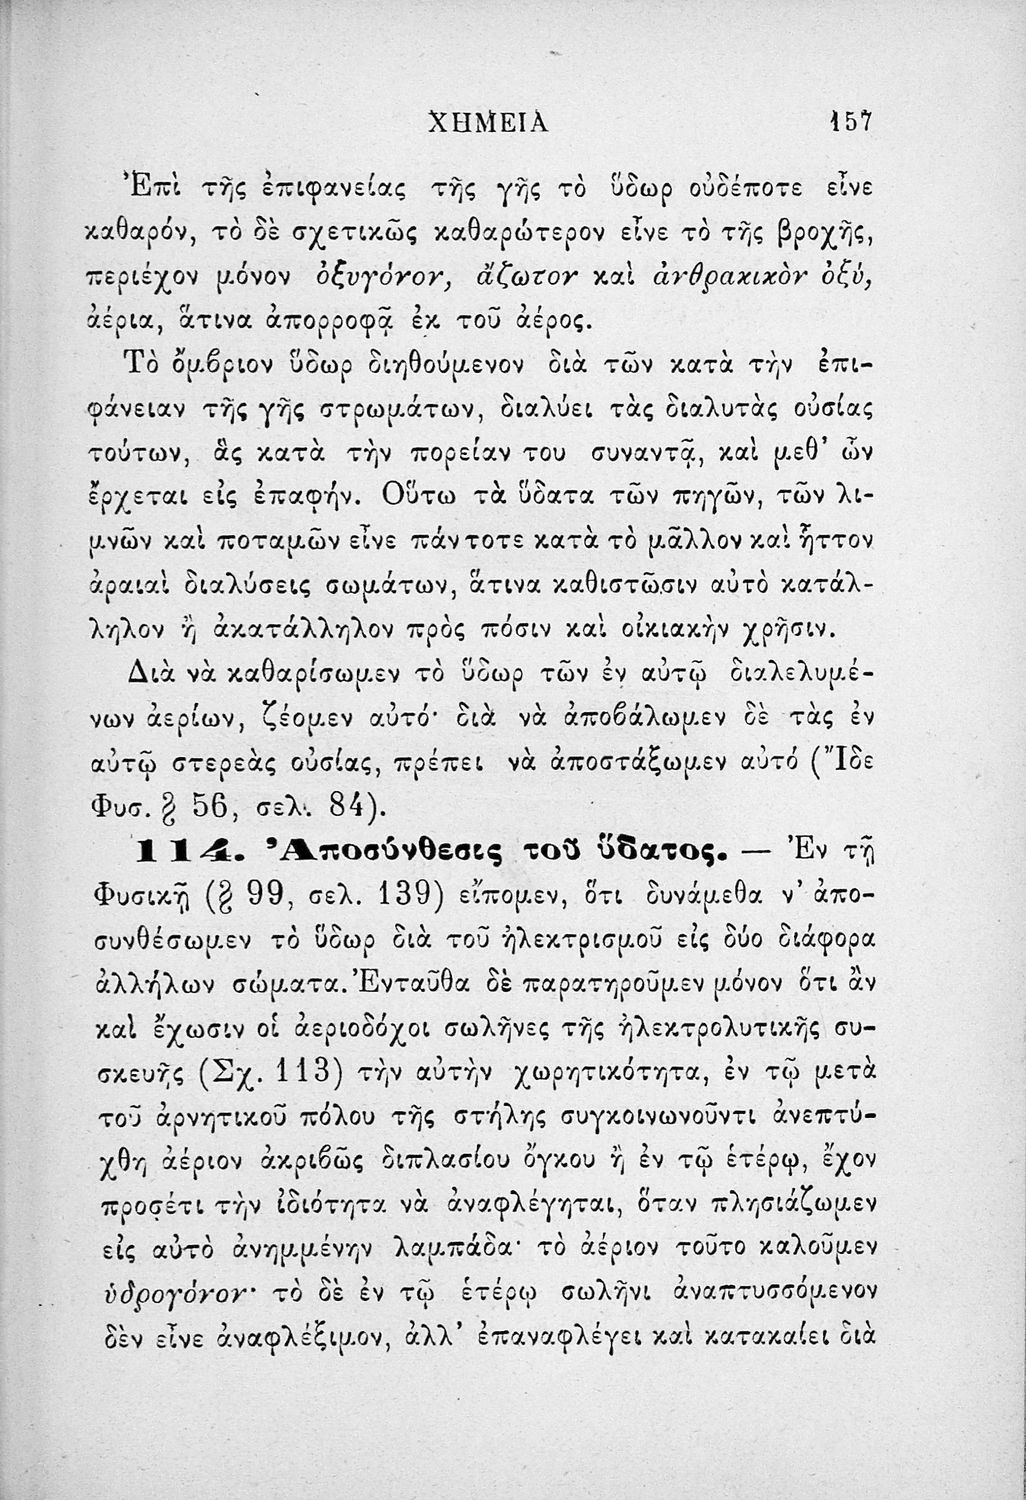 ΧΗΜΕΙΑ 157
Ἐπὶ τῆς ἐπιφανείας τῆς γῆς τὸ ὕδωρ οὐδέποτε εἶνε
καθαρόν, τὸ δὲ σχετικῶς καθαρώτερον εἶνε τὸ τῆς βροχῆς,
περιέχον μόνον ὀξυγόνον, ἄζωτον καὶ ἀνθρακικὸν ὀξύ,
ἀέρια, ἅτινα ἀπορροφᾷ ἐκ τοῦ ἀέρος.
Τὸ ὄμβριον ὕδωρ διηθούμενον διὰ τῶν κατὰ τὴν ἐπι-
φάνειαν τῆς γῆς στρωμάτων, διαλύει τὰς διαλυτὰς οὐσίας
τούτων, ἃς κατὰ τὴν πορείαν του συναντᾷ, καὶ μεθ᾽ ὧν
ἔρχεται εἰς ἐπαφήν. Οὕτω τὰ ὕδατα τῶν πηγῶν, τῶν λι-
μνῶν καὶ ποταμῶν εἶνε πάντοτε κατὰ τὸ μᾶλλον καὶ ἧττον
ἀραιαὶ διαλύσεις σωμάτων, ἅτινα καθιστῶσιν αὐτὸ κατάλ-
ληλον ἢ ἀκατάλληλον πρὸς πόσιν καὶ οἰκιακὴν χρῆσιν.
Διὰ νὰ καθαρίσωμεν τὸ ὕδωρ τῶν ἐν αὐτῷ διαλελυμέ-
νων ἀερίων, ζέομεν αὐτό· διὰ νὰ ἀποβάλωμεν δὲ τὰς ἐν
αὐτῷ στερεὰς οὐσίας, πρέπει νὰ ἀποστάξωμεν αὐτό (Ἴδε
Φυσ. § 56, σελ. 84).
114. Ἀποσύνθεσις τοῦ ὕδατος. — Ἐν τῇ
Φυσικῇ (§ 99, σελ. 139) εἴπομεν, ὅτι δυνάμεθα ν᾽ ἀπο-
συνθέσωμεν τὸ ὕδωρ διὰ τοῦ ἠλεκτρισμοῦ εἰς δύο διάφορα
ἀλλήλων σώματα. Ἐνταῦθα δὲ παρατηροῦμεν μόνον ὅτι ἂν
καὶ ἔχωσιν οἱ ἀεριοδόχοι σωλῆνες τῆς ἠλεκτρολυτικῆς συ-
σκευῆς (Σχ. 113) τὴν αὐτὴν χωρητικότητα, ἐν τῷ μετὰ
τοῦ ἀρνητικοῦ πόλου τῆς στήλης συγκοινωνοῦντι ἀνεπτύ-
χθη ἀέριον ἀκριβῶς διπλασίου ὄγκου ἢ ἐν τῷ ἑτέρῳ, ἔχον
προσέτι τὴν ἰδιότητα νὰ ἀναφλέγηται, ὅταν πλησιάζωμεν
εἰς αὐτὸ ἀνημμένην λαμπάδα· τὸ ἀέριον τοῦτο καλοῦμεν
ὑδρογόνον· τὸ δὲ ἐν τῷ ἑτέρῳ σωλῆνι ἀναπτυσσόμενον
δὲν εἶνε ἀναφλέξιμον, ἀλλ᾽ ἐπαναφλέγει καὶ κατακαίει διὰ